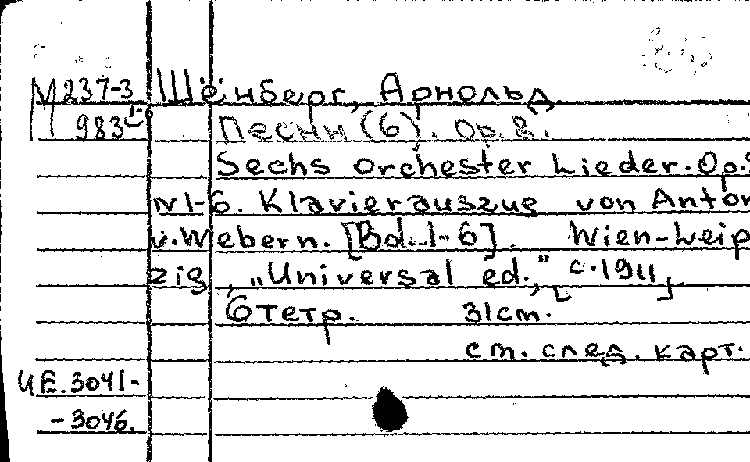 М 237-3 Шёнберг, Арнольд
983 Песни (6). Op. 8.
Sechs Orchester Lieder. Op.
N1-6. Klavierauszug von Anton
v. Webern. [Bd. 1-6]. Wien-Leip
zig, „Universal ed.," [c. 1911]
6 тетр. 31 cm.
см. след. карт.
UE. 3041-
-3046.